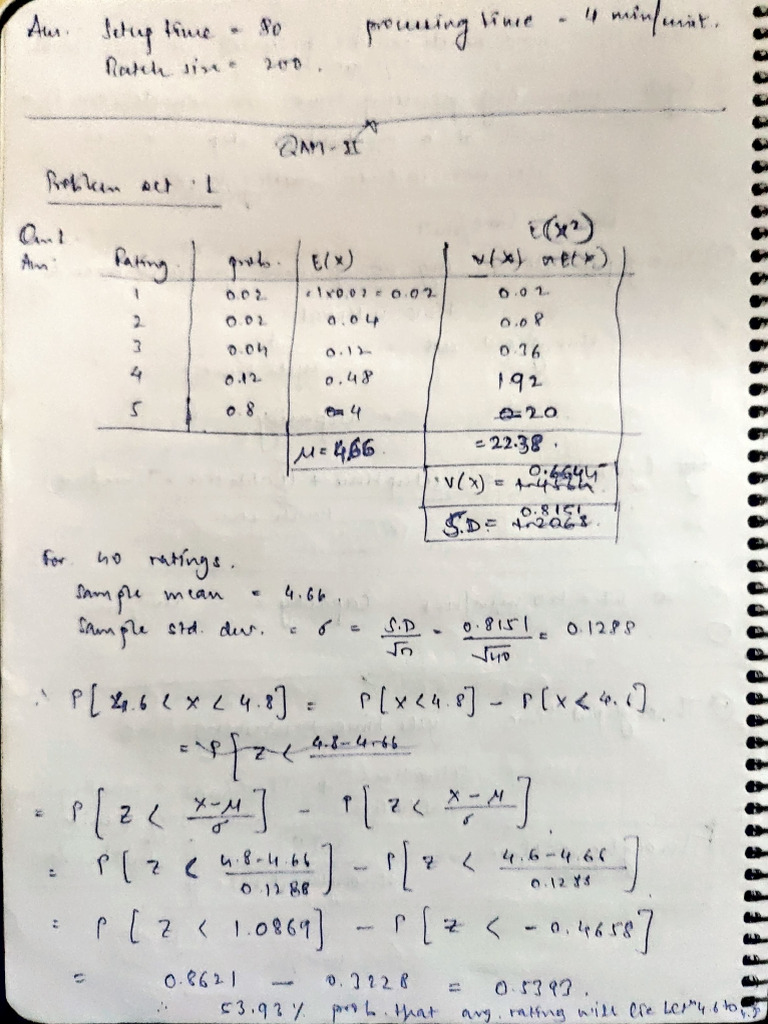 Ans. Setup time = 80 processing time = 4 min/unit.
Batch size = 200.
QAM-II
Problem set : 1
Qn.1
E(x²)
Ans: Rating. prob. E(x) v(x) xE(x)
1 0.02 = 1x0.02 = 0.02 0.02
2 0.02 0.04 0.08
3 0.04 0.12 0.36
4 0.12 0.48 1.92
5 0.8 4 20
μ = 4.66 = 22.38.
v(x) = 0.6644
S.D = 0.8151
For 40 ratings.
Sample mean = 4.66.
Sample std. dev. = σ = S.D/√n = 0.8151/√40 = 0.1288
∴ P[4.6 < x < 4.8] = P[x < 4.8] - P[x < 4.6]
= P[z < 4.8-4.66
= P[z < x-μ/σ] - P[z < x-μ/σ]
= P[z < 4.8-4.66/0.1288] - P[z < 4.6-4.66/0.1288]
= P[z < 1.0869] - P[z < -0.4658]
= 0.8621 - 0.3228 = 0.5393.
∴ 53.93% prob. that avg. rating will be betn 4.6 to 4.8